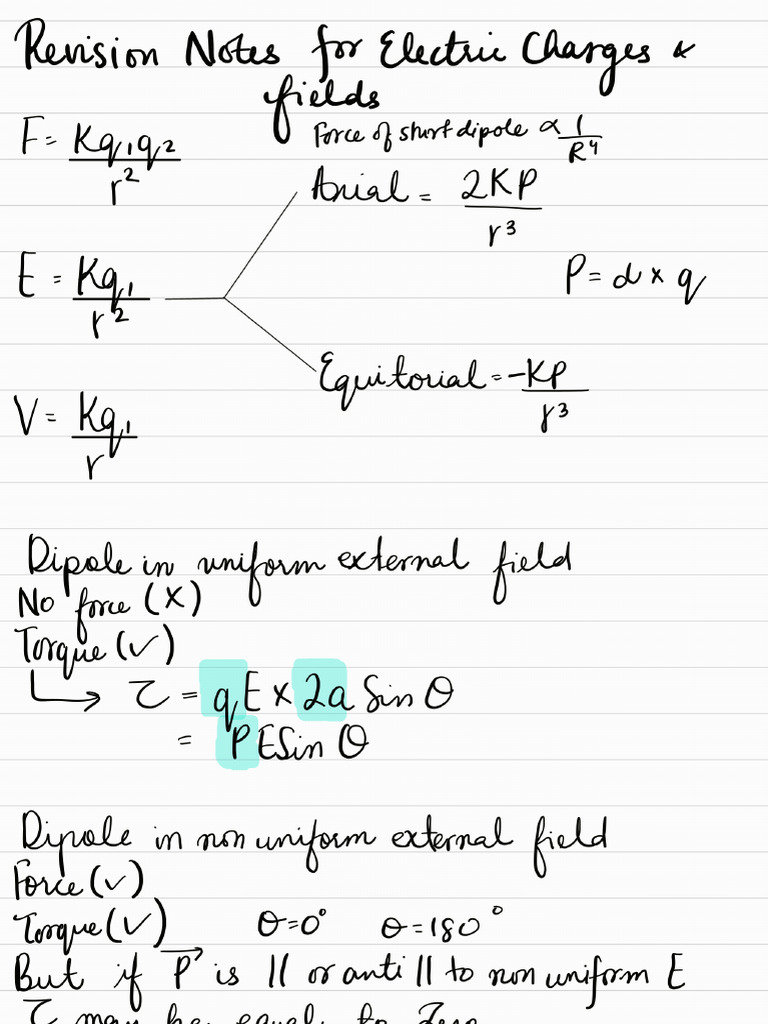 Revision Notes for Electric Charges &
fields
F = Kq1q2 / r²
Force of short dipole ∝ 1 / R⁴
Axial = 2KP / r³
E = Kq1 / r²
P = d × q
Equitorial = -KP / r³
V = Kq1 / r
Dipole in uniform external field
No force (X)
Torque (✓)
↳ τ = qE × 2a Sin θ
= PESin θ
Dipole in non uniform external field
Force (✓)
Torque (✓) θ=0° θ=180°
But if P⃗ is || or anti || to non uniform E
τ may be equal to Zero